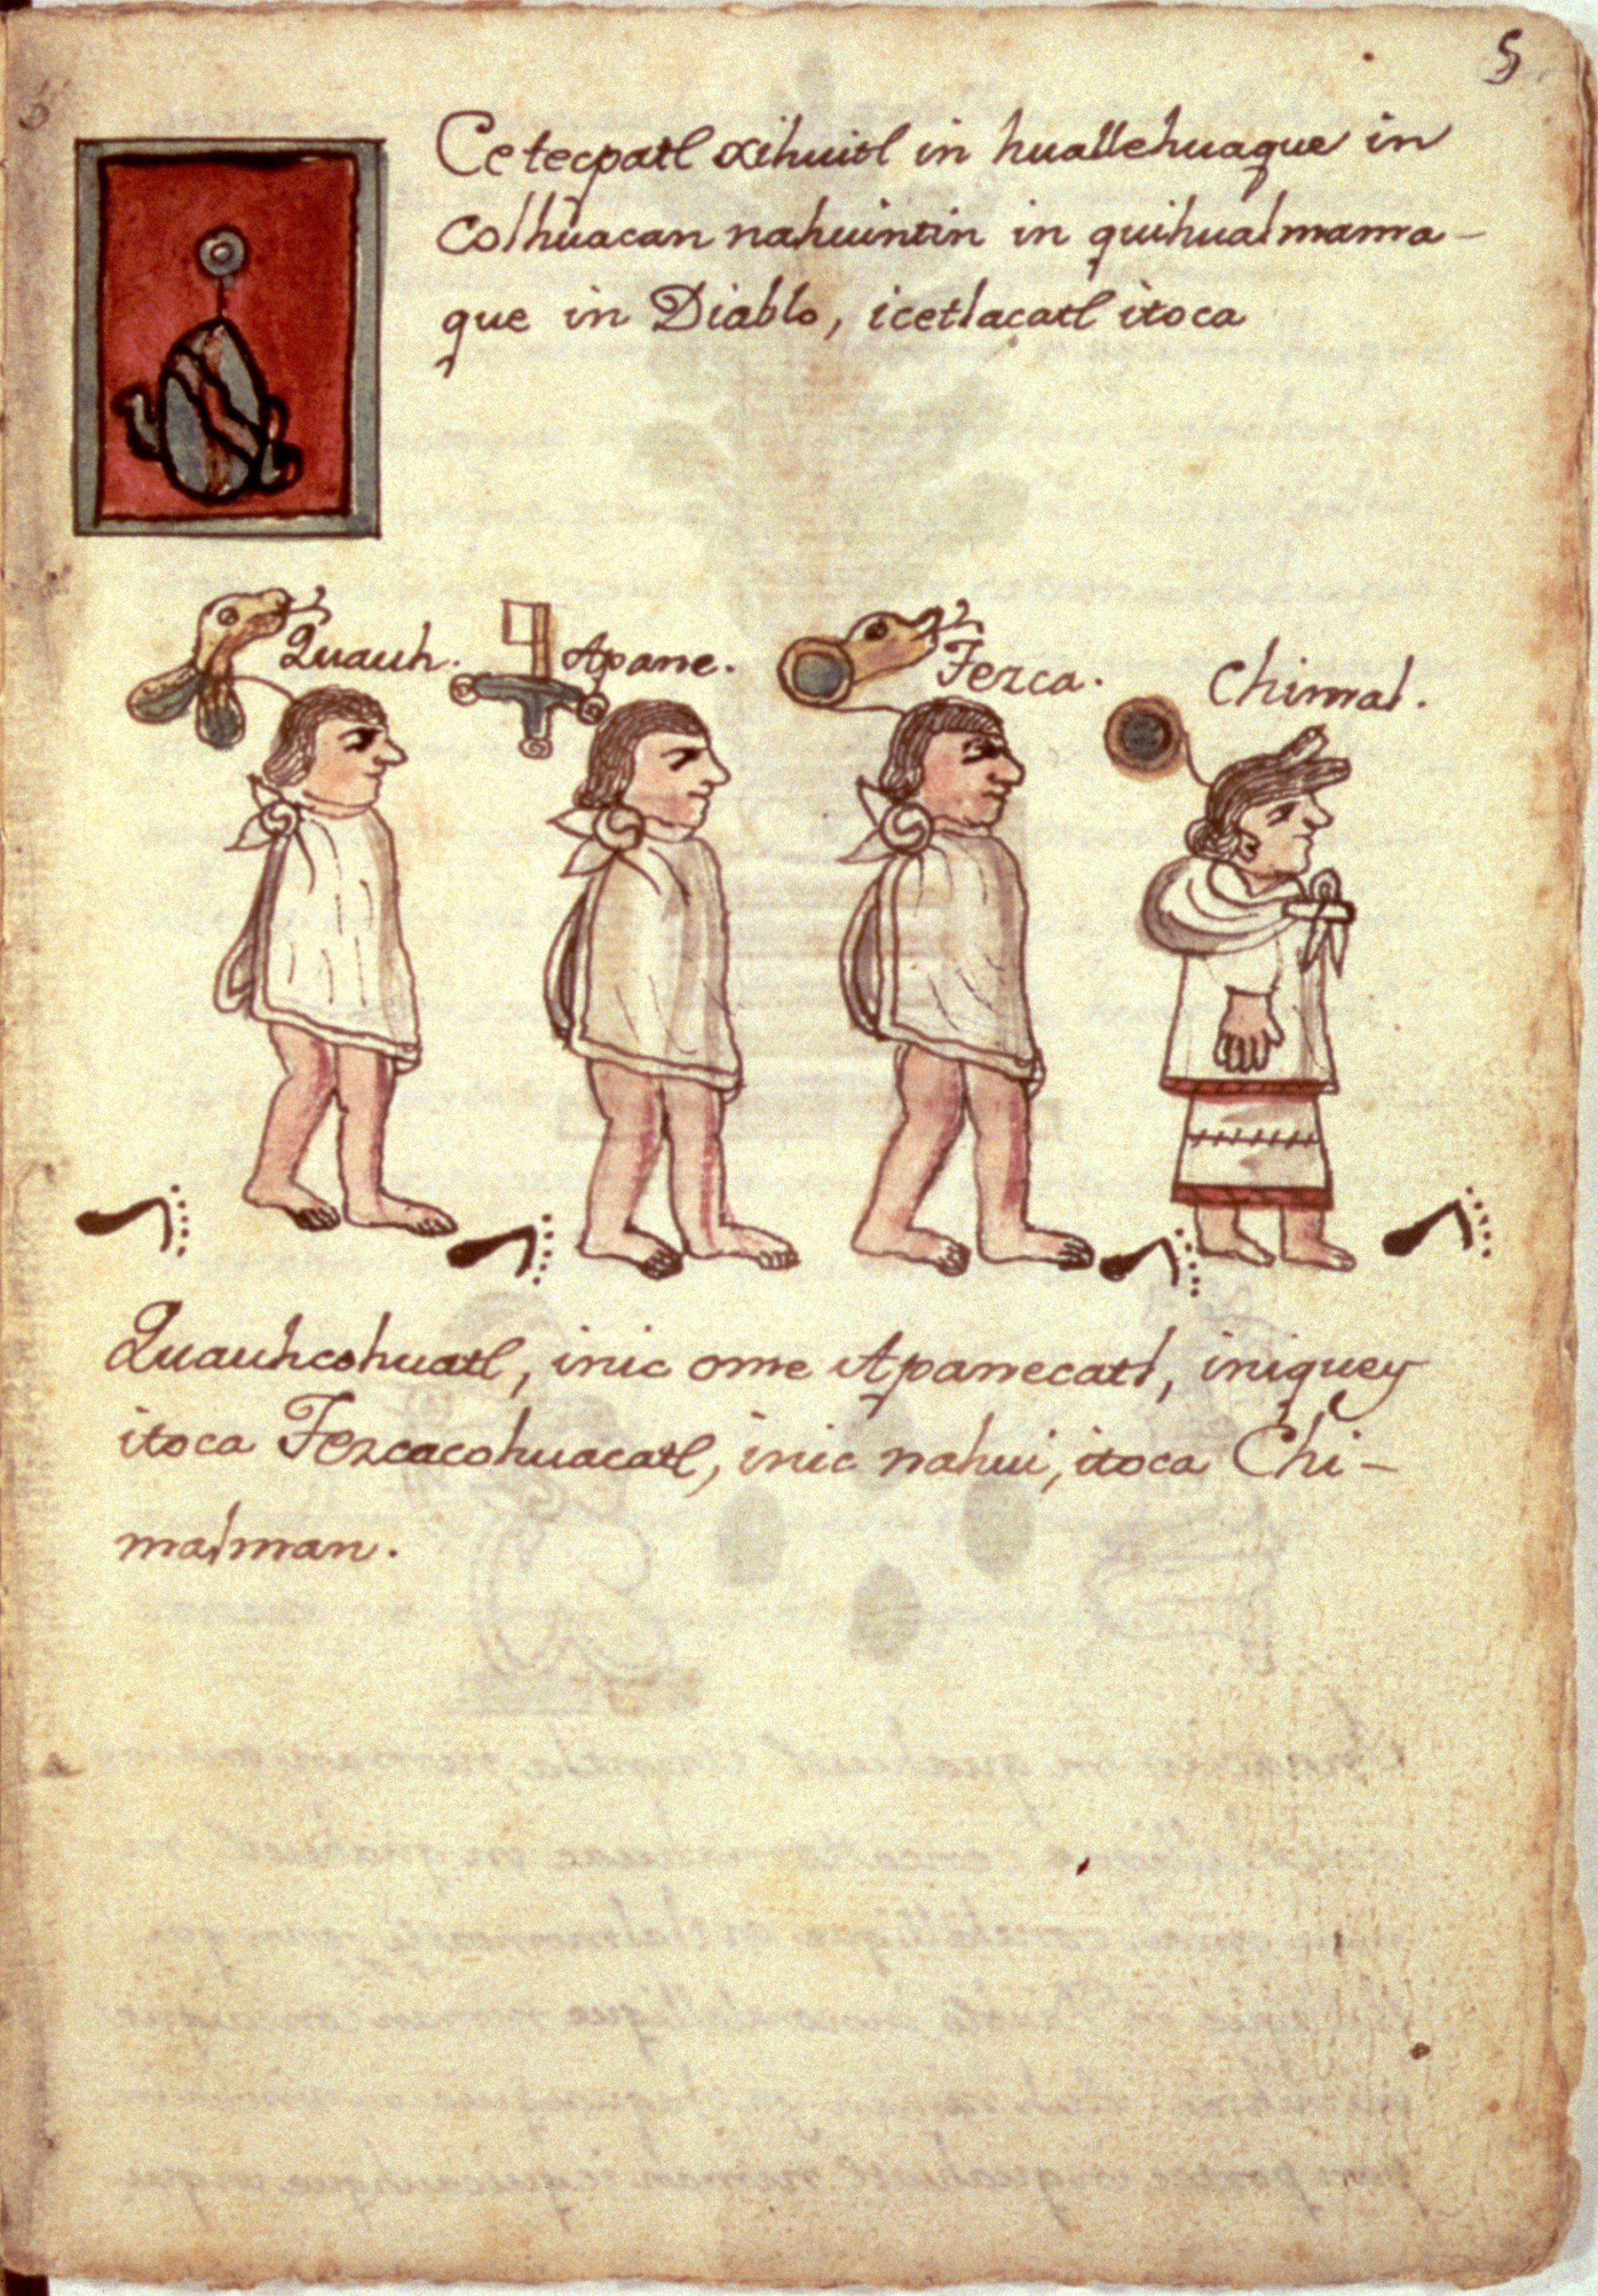 5
Ce tecpatl xihuitl in huallehuaque in
Colhuacan nahuintin in quihualmama-
que in Diablo, icetlacatl itoca
Quauh.
Apane.
Tezca.
Chimal.
Quauhcohuatl, inic ome Apanecatl, iniquey
itoca Tezcacohuacatl, inic nahui, itoca Chi-
malman.